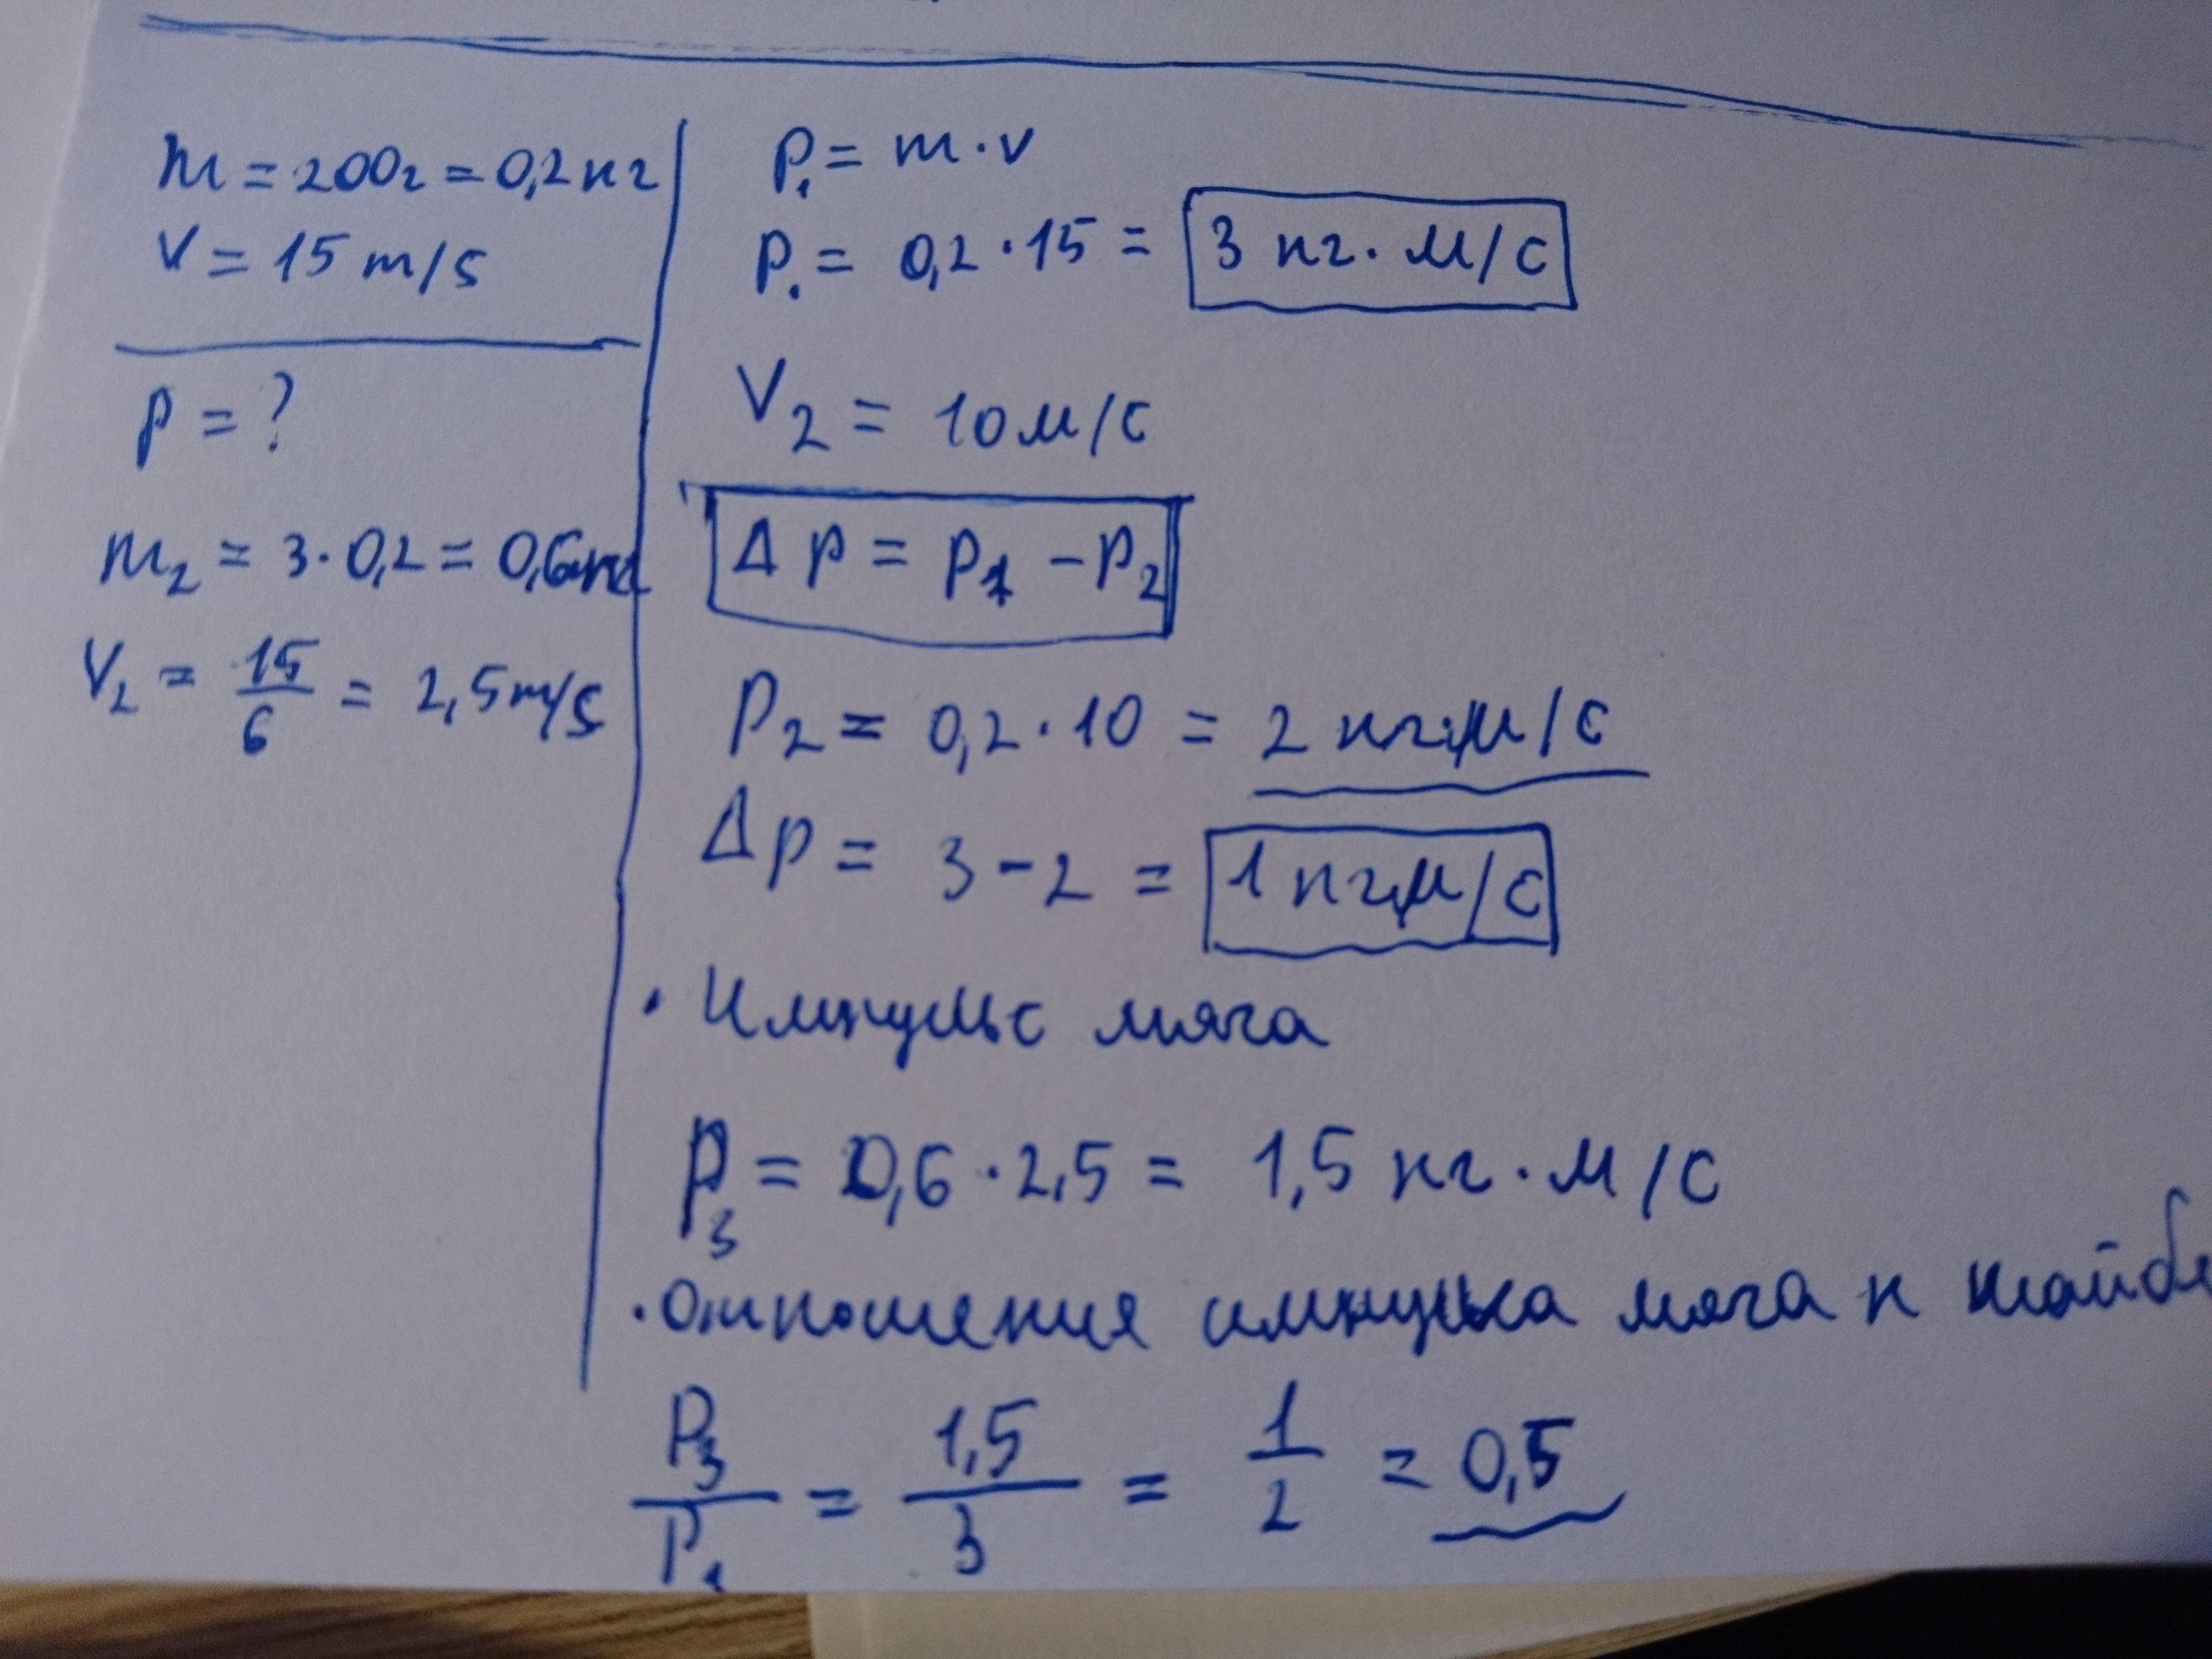 m = 200г = 0,2 кг
V = 15 m/s
p = ?
m₂ = 3 · 0,2 = 0,6 кг
V₂ = 15/6 = 2,5 m/s
P₁ = m · v
P₁ = 0,2 · 15 = 3 кг · м/с
V₂ = 10 м/с
Δp = p₁ - p₂
P₂ = 0,2 · 10 = 2 кг·м/с
Δp = 3 - 2 = 1 кг·м/с
· Импульс мяча
P₃ = 0,6 · 2,5 = 1,5 кг · м/с
· Отношения импульса мяча к шайбе
P₃/P₁ = 1,5/3 = 1/2 = 0,5